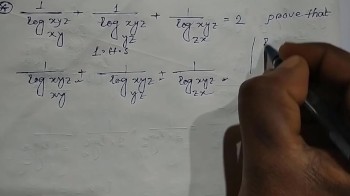 1/log_xy xyz + 1/log_yz xyz + 1/log_zx xyz = 2 prove that
L.H.S
1/log_xy xyz + 1/log_yz xyz + 1/log_zx xyz =